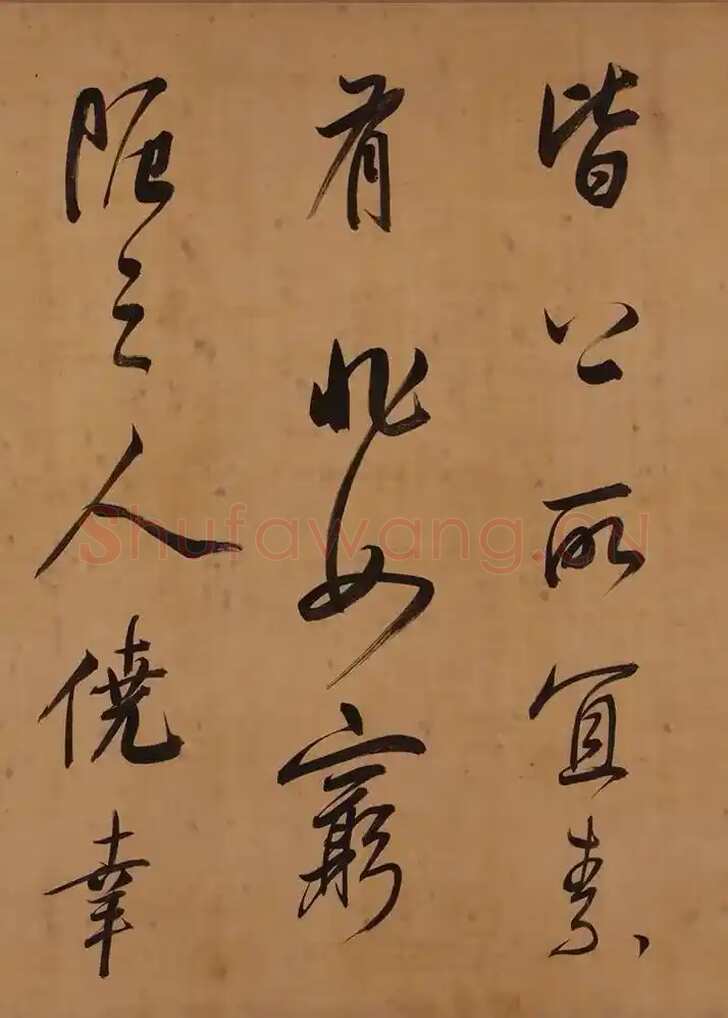 皆公所宜素
有非如窮
阨之人僥幸
Shufawang.CN